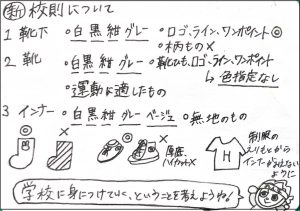 新 校則について
1 靴下 ・白 黒 紺 グレー ・ロゴ、ライン、ワンポイント◎
・柄もの×
2 靴 ・白 黒 紺 グレー ・靴ひも、ロゴ、ライン、ワンポイント
↳色指定なし
・運動に適したもの
3 インナー ・白 黒 紺 グレー ベージュ ・無地のもの
◎ × ◎ × 厚底、ハイカット×
H
制服の
えりもとから
インナーが見えない
ように
学校に身につけていく、ということを考えようね!